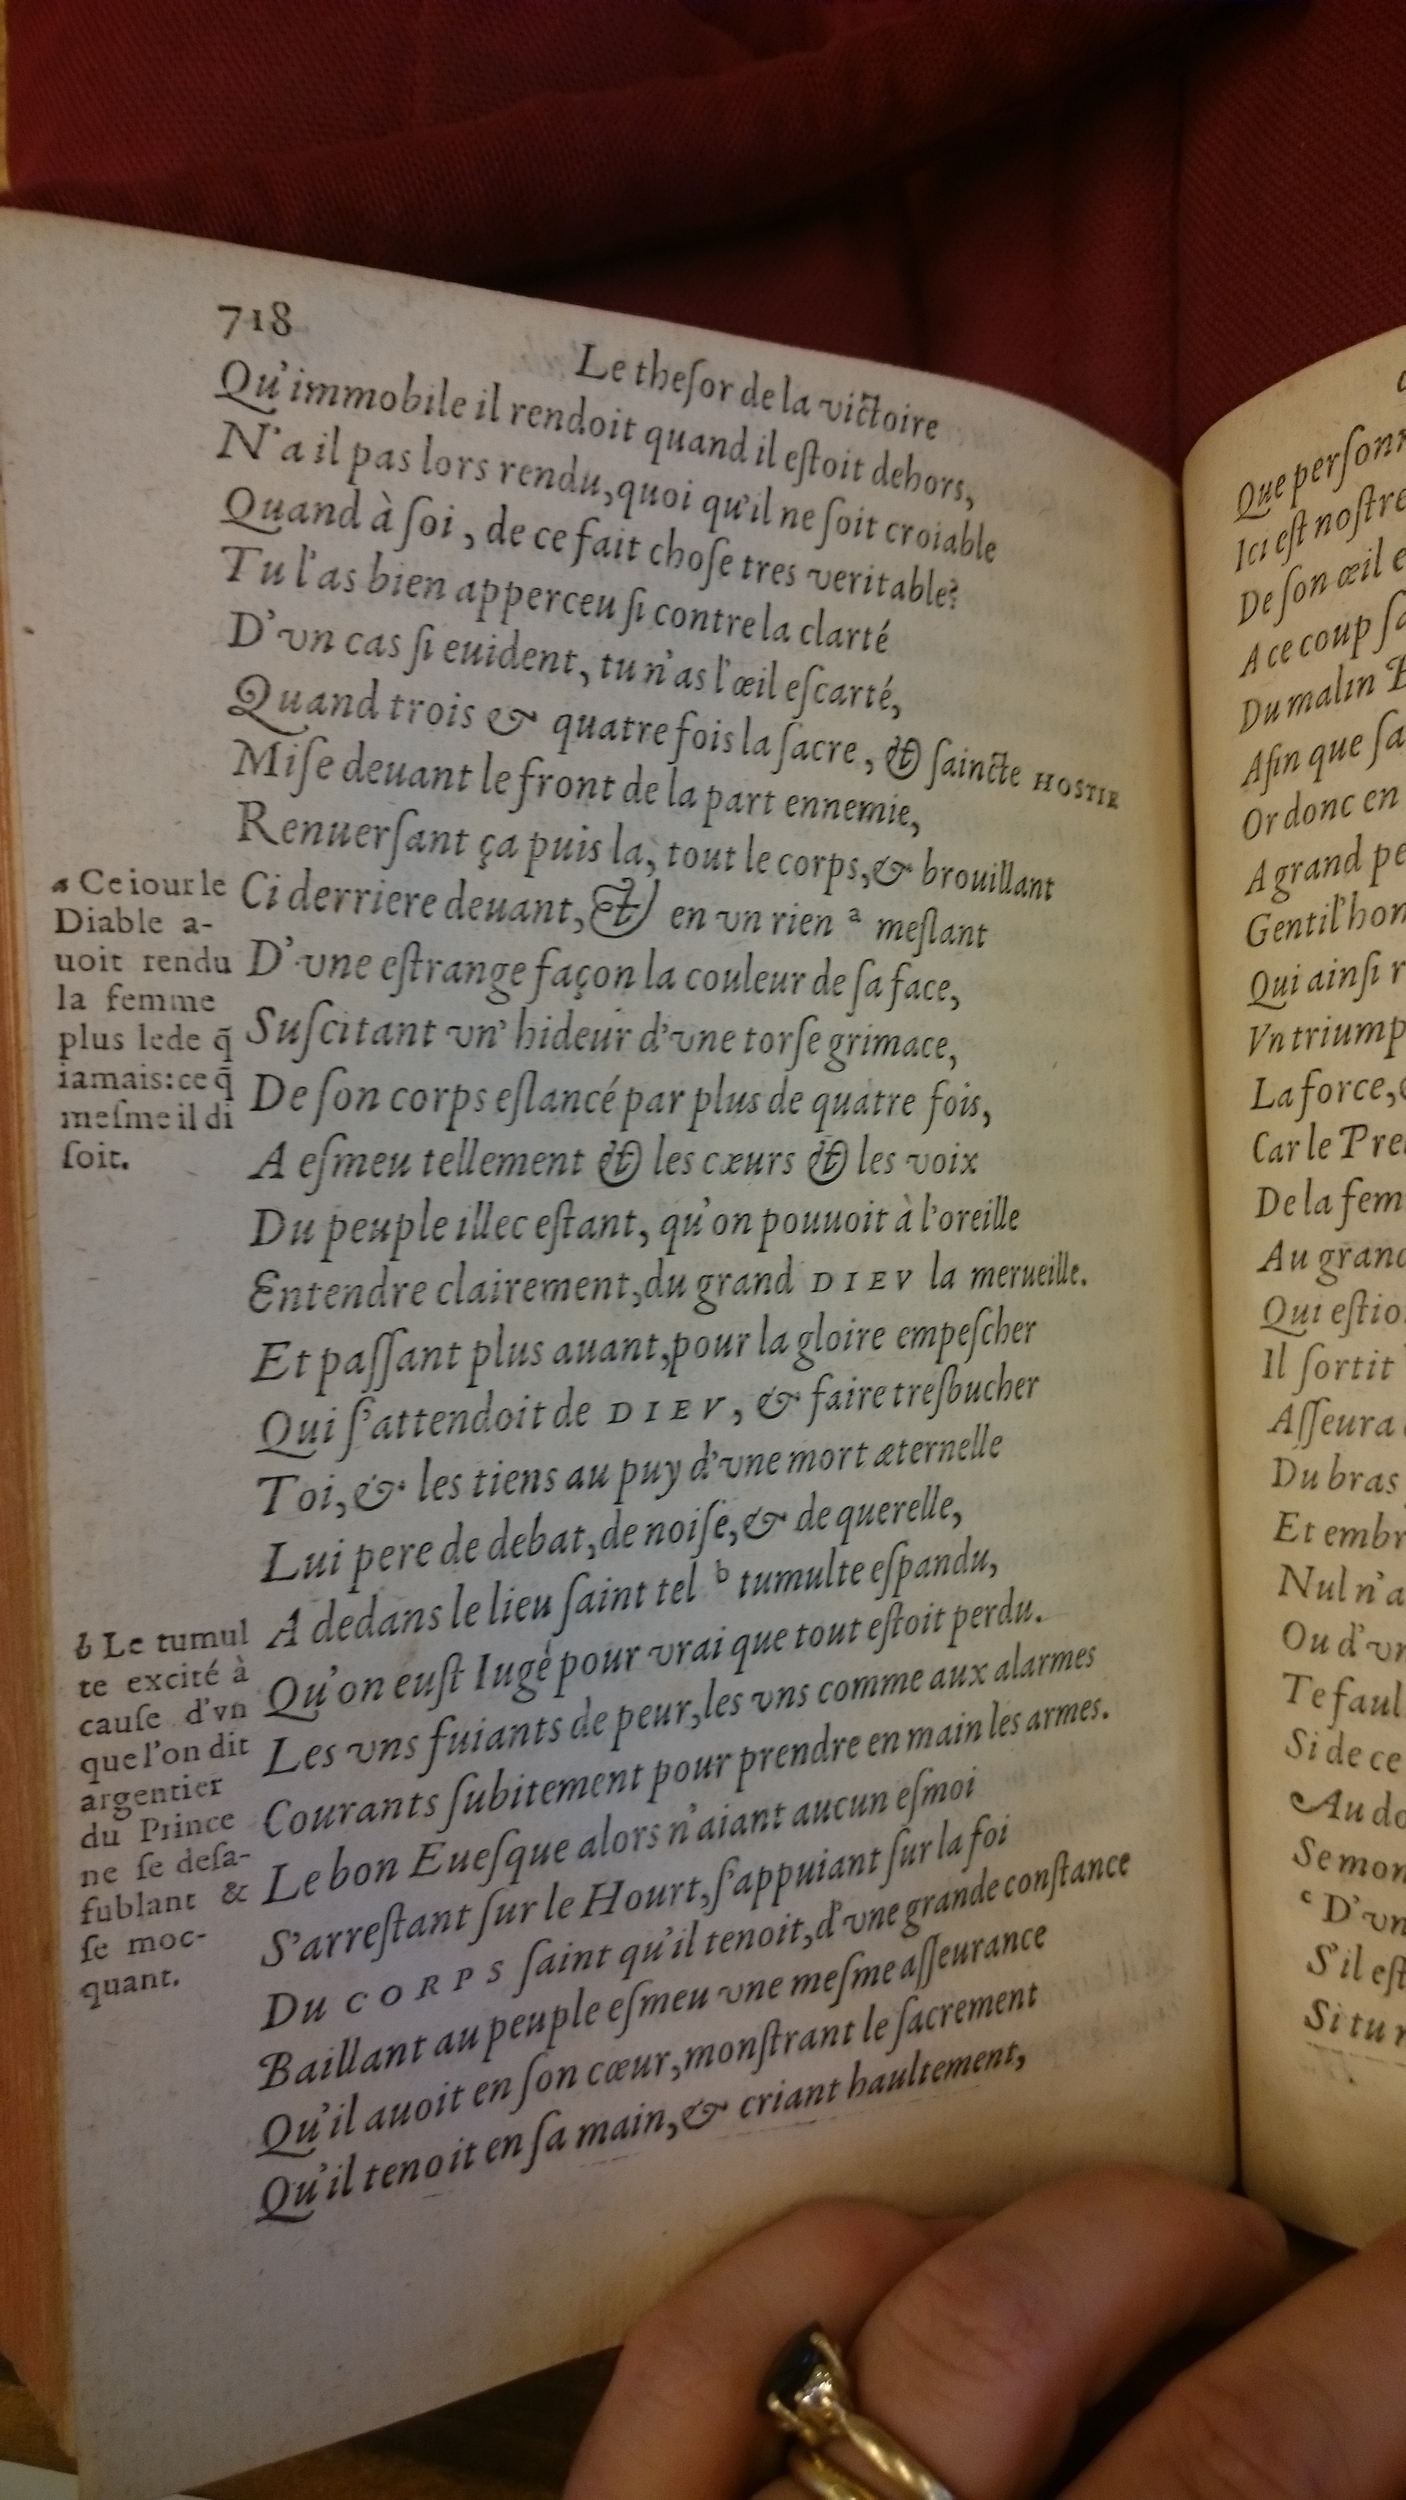 718
Le theſor de la victoire
Qu'immobile il rendoit quand il eſtoit dehors,
N'a il pas lors rendu, quoi qu'il ne ſoit croiable
Quand à ſoi, de ce fait choſe tres veritable?
Tu l'as bien apperceu ſi contre la clarté
D'vn cas ſi euident, tu n'as l'œil eſcarté,
Quand trois & quatre fois la ſacre, & ſaincte HOSTIE
Miſe deuant le front de la part ennemie,
Renuerſant ça puis la, tout le corps, & brouillant
Ci derriere deuant, & en vn rien a meſlant
D'vne eſtrange façon la couleur de ſa face,
Suſcitant vn' hideur d'vne torſe grimace,
De ſon corps eſlancé par plus de quatre fois,
A eſmeu tellement & les cœurs & les voix
Du peuple illec eſtant, qu'on pouuoit à l'oreille
Entendre clairement, du grand DIEV la merueille.
Et paſſant plus auant, pour la gloire empeſcher
Qui ſ'attendoit de DIEV, & faire treſbucher
Toi, & les tiens au puy d'vne mort æternelle
Lui pere de debat, de noiſe, & de querelle,
A dedans le lieu ſaint tel b tumulte eſpandu,
Qu'on euſt Iugé pour vrai que tout eſtoit perdu.
Les vns fuiants de peur, les vns comme aux alarmes
Courants ſubitement pour prendre en main les armes.
Le bon Eueſque alors n'aiant aucun eſmoi
S'arreſtant ſur le Hourt, ſ'appuiant ſur la foi
Du CORPS ſaint qu'il tenoit, d'vne grande conſtance
Baillant au peuple eſmeu vne meſme aſſeurance
Qu'il auoit en ſon cœur, monſtrant le ſacrement
Qu'il tenoit en ſa main, & criant haultement,
a Ce iour le
Diable a-
uoit rendu
la femme
plus lede q̃
iamais: ce q̃
meſme il di
ſoit.
b Le tumul
te excité à
cauſe d'vn
que l'on dit
argentier
du Prince
ne ſe deſa-
fublant &
ſe moc-
quant.
Que perſonn
Ici eſt noſtre
De ſon œil e
A ce coup ſa
Du malin
Afin que ſa
Or donc en
A grand pe
Gentil'hon
Qui ainſi r
Vn triump
La force,
Car le Pre
De la fem
Au grand
Qui eſtio
Il ſortit
Aſſeura
Du bras
Et embr
Nul n'a
Ou d'vn
Te faul
Si de ce
Au do
Semon
c D'vn
S'il eſt
Si tu